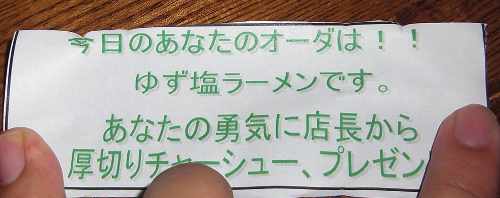 今日のあなたのオーダは！！
ゆず塩ラーメンです。
あなたの勇気に店長から
厚切りチャーシュー、プレゼン